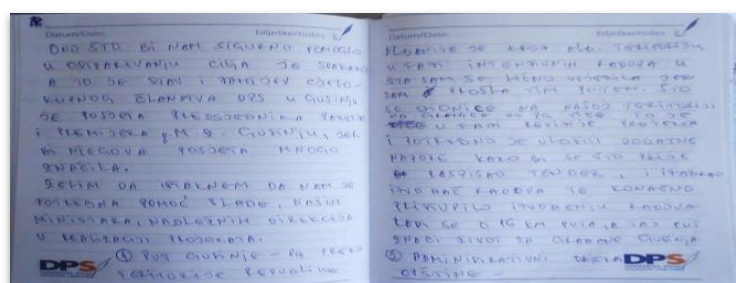 Datum/Date: Bilješke/Notes
ONO ŠTO BI NAM SIGURNO POMOGLO
U OSTVARIVANJU CILJA JE SVAKAKO
A TO JE STAV I ZAHTJEV CJELO-
KUPNOG ČLANSTVA DPS U GUSINJU
JE POSJETA PREDSJEDNIKA PARTIJE
I PREMIJERA g. M. Đ. GUSINJU, JER
BI NJEGOVA POSJETA MNOGO
ZNAČILA.
ŽELIM DA ISTAKNEM DA NAM JE
POTREBNA POMOĆ VLADE, NAŠIH
MINISTARA, NADLEŽNIH DIREKCIJA
U REALIZACIJI PROJEKATA.
① PUT GUSINJE – PG PREKO
TERITORIJE REPUBLIKE
DPS
Datum/Date: Bilješke/Notes
ALBANIJE JE KROZ ALB. TERITORIJU
U FAZI INTENZIVNIH RADOVA U
ŠTA SAM SE LIČNO UVJERILA JER
SAM PROŠLA TIM PUTEM. ŠTO
SE DIONICE NA NAŠOJ TERITORIJI
OD GRANICE DO PG TIČE TO JE
U FAZI REVIZIJE PROJEKTA
I POTREBNO JE ULOŽITI DODATNE
NAPORE KAKO BI SE ŠTO PRIJE
RASPISAO TENDER, I IZABRAO
IZVOĐAČ RADOVA TE KONAČNO
PRISTUPILO IZVOĐENJU RADOVA
RADI SE O 16 KM PUTA, A TAJ PUT
ZNAČI ŽIVOT ZA GRAĐANE GUSINJA
② ADMINISTRATIVNI
OPŠTINE –
DPS